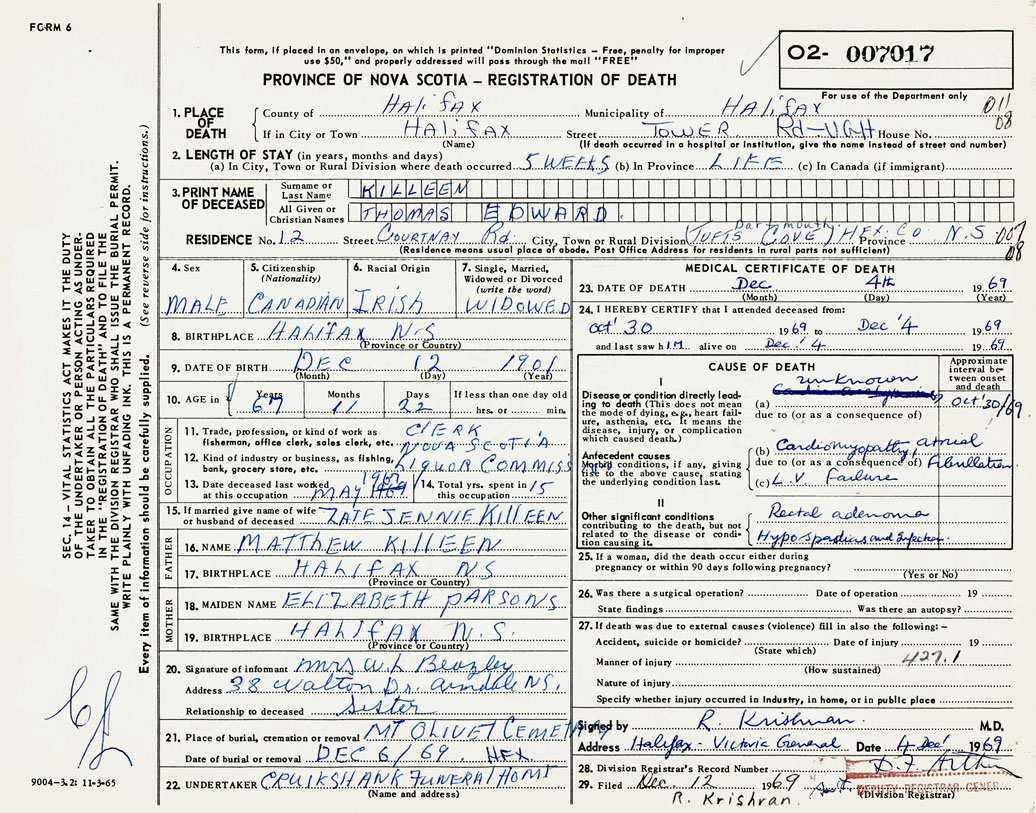 FORM 6
This form, if placed in an envelope, on which is printed "Dominion Statistics – Free, penalty for improper
use $50," and properly addressed will pass through the mail "FREE"
PROVINCE OF NOVA SCOTIA – REGISTRATION OF DEATH
O2- 007017
For use of the Department only
011
08
1. PLACE OF DEATH
County of Halifax Municipality of Halifax
If in City or Town Halifax Street TOWER Rd-VGH House No.
(Name) (If death occurred in a hospital or institution, give the name instead of street and number)
2. LENGTH OF STAY (in years, months and days)
(a) In City, Town or Rural Division where death occurred 5 WEEKS (b) In Province LIFE (c) In Canada (if immigrant)
3. PRINT NAME OF DECEASED
Surname or Last Name KILLEEN
All Given or Christian Names THOMAS EDWARD.
Dartmouth
RESIDENCE No. 12 Street Courtnay Rd. City, Town or Rural Division TUFTS COVE HFX. CO Province N.S. 007
08
(Residence means usual place of abode. Post Office Address for residents in rural parts not sufficient)
4. Sex MALE
5. Citizenship (Nationality) CANADIAN
6. Racial Origin IRISH
7. Single, Married, Widowed or Divorced (write the word) WIDOWED
8. BIRTHPLACE HALIFAX N.S
(Province or Country)
9. DATE OF BIRTH DEC 12 1901
(Month) (Day) (Year)
10. AGE in Years 67 Months 11 Days 22 If less than one day old hrs. or min.
OCCUPATION
11. Trade, profession, or kind of work as fisherman, office clerk, sales clerk, etc. CLERK
12. Kind of industry or business, as fishing, bank, grocery store, etc. NOVA SCOTIA LIQUOR COMMISS
13. Date deceased last worked at this occupation MAY 1967
14. Total yrs. spent in this occupation 15
15. If married give name of wife or husband of deceased LATE JENNIE KILLEEN
FATHER
16. NAME MATTHEW KILLEEN
17. BIRTHPLACE HALIFAX NS
(Province or Country)
MOTHER
18. MAIDEN NAME ELIZABETH PARSONS
19. BIRTHPLACE HALIFAX N.S.
(Province or Country)
20. Signature of informant Mrs W.L Beazley
Address 38 Walton Dr. Armdale NS.
Relationship to deceased Sister
21. Place of burial, cremation or removal MT OLIVET CEMETERY
Date of burial or removal DEC 6/69 HFX
22. UNDERTAKER CRUIKSHANK FUNERAL HOME
(Name and address)
MEDICAL CERTIFICATE OF DEATH
23. DATE OF DEATH Dec 4th 1969
(Month) (Day) (Year)
24. I HEREBY CERTIFY that I attended deceased from:
Oct' 30 1969 to Dec '4 1969
and last saw h IM alive on Dec' 4 1969.
CAUSE OF DEATH
Approximate interval between onset and death
I
Disease or condition directly leading to death (This does not mean the mode of dying, e.g., heart failure, asthenia, etc. It means the disease, injury, or complication which caused death.)
unknown
(a) Oct' 30/69.
due to (or as a consequence of)
Antecedent causes
Morbid conditions, if any, giving rise to the above cause, stating the underlying condition last.
(b) Cardiomyopathy, atrial Fibrillation
due to (or as a consequence of)
(c) L.V. Failure
II
Other significant conditions contributing to the death, but not related to the disease or condition causing it.
Rectal adenoma
Hypospadias and Infection
25. If a woman, did the death occur either during
pregnancy or within 90 days following pregnancy?
(Yes or No)
26. Was there a surgical operation? Date of operation 19
State findings Was there an autopsy?
27. If death was due to external causes (violence) fill in also the following: –
Accident, suicide or homicide? Date of injury 19
(State which)
427.1
Manner of injury
(How sustained)
Nature of injury
Specify whether injury occurred in industry, in home, or in public place
Signed by R. Krishnan. M.D.
Address Halifax - Victoria General Date 4 Dec' 1969
28. Division Registrar's Record Number
29. Filed Dec. 12 1969
(Division Registrar)
DEPUTY REGISTRAR GENER
R. Krishran.
SEC. 14 – VITAL STATISTICS ACT MAKES IT THE DUTY
OF THE UNDERTAKER OR PERSON ACTING AS UNDER-
TAKER TO OBTAIN ALL THE PARTICULARS REQUIRED
IN THE "REGISTRATION OF DEATH" AND TO FILE THE
SAME WITH THE DIVISION REGISTRAR WHO SHALL ISSUE THE BURIAL PERMIT.
WRITE PLAINLY WITH UNFADING INK. THIS IS A PERMANENT RECORD.
Every item of information should be carefully supplied. (See reverse side for instructions.)
9004-3.2: 11-3-65